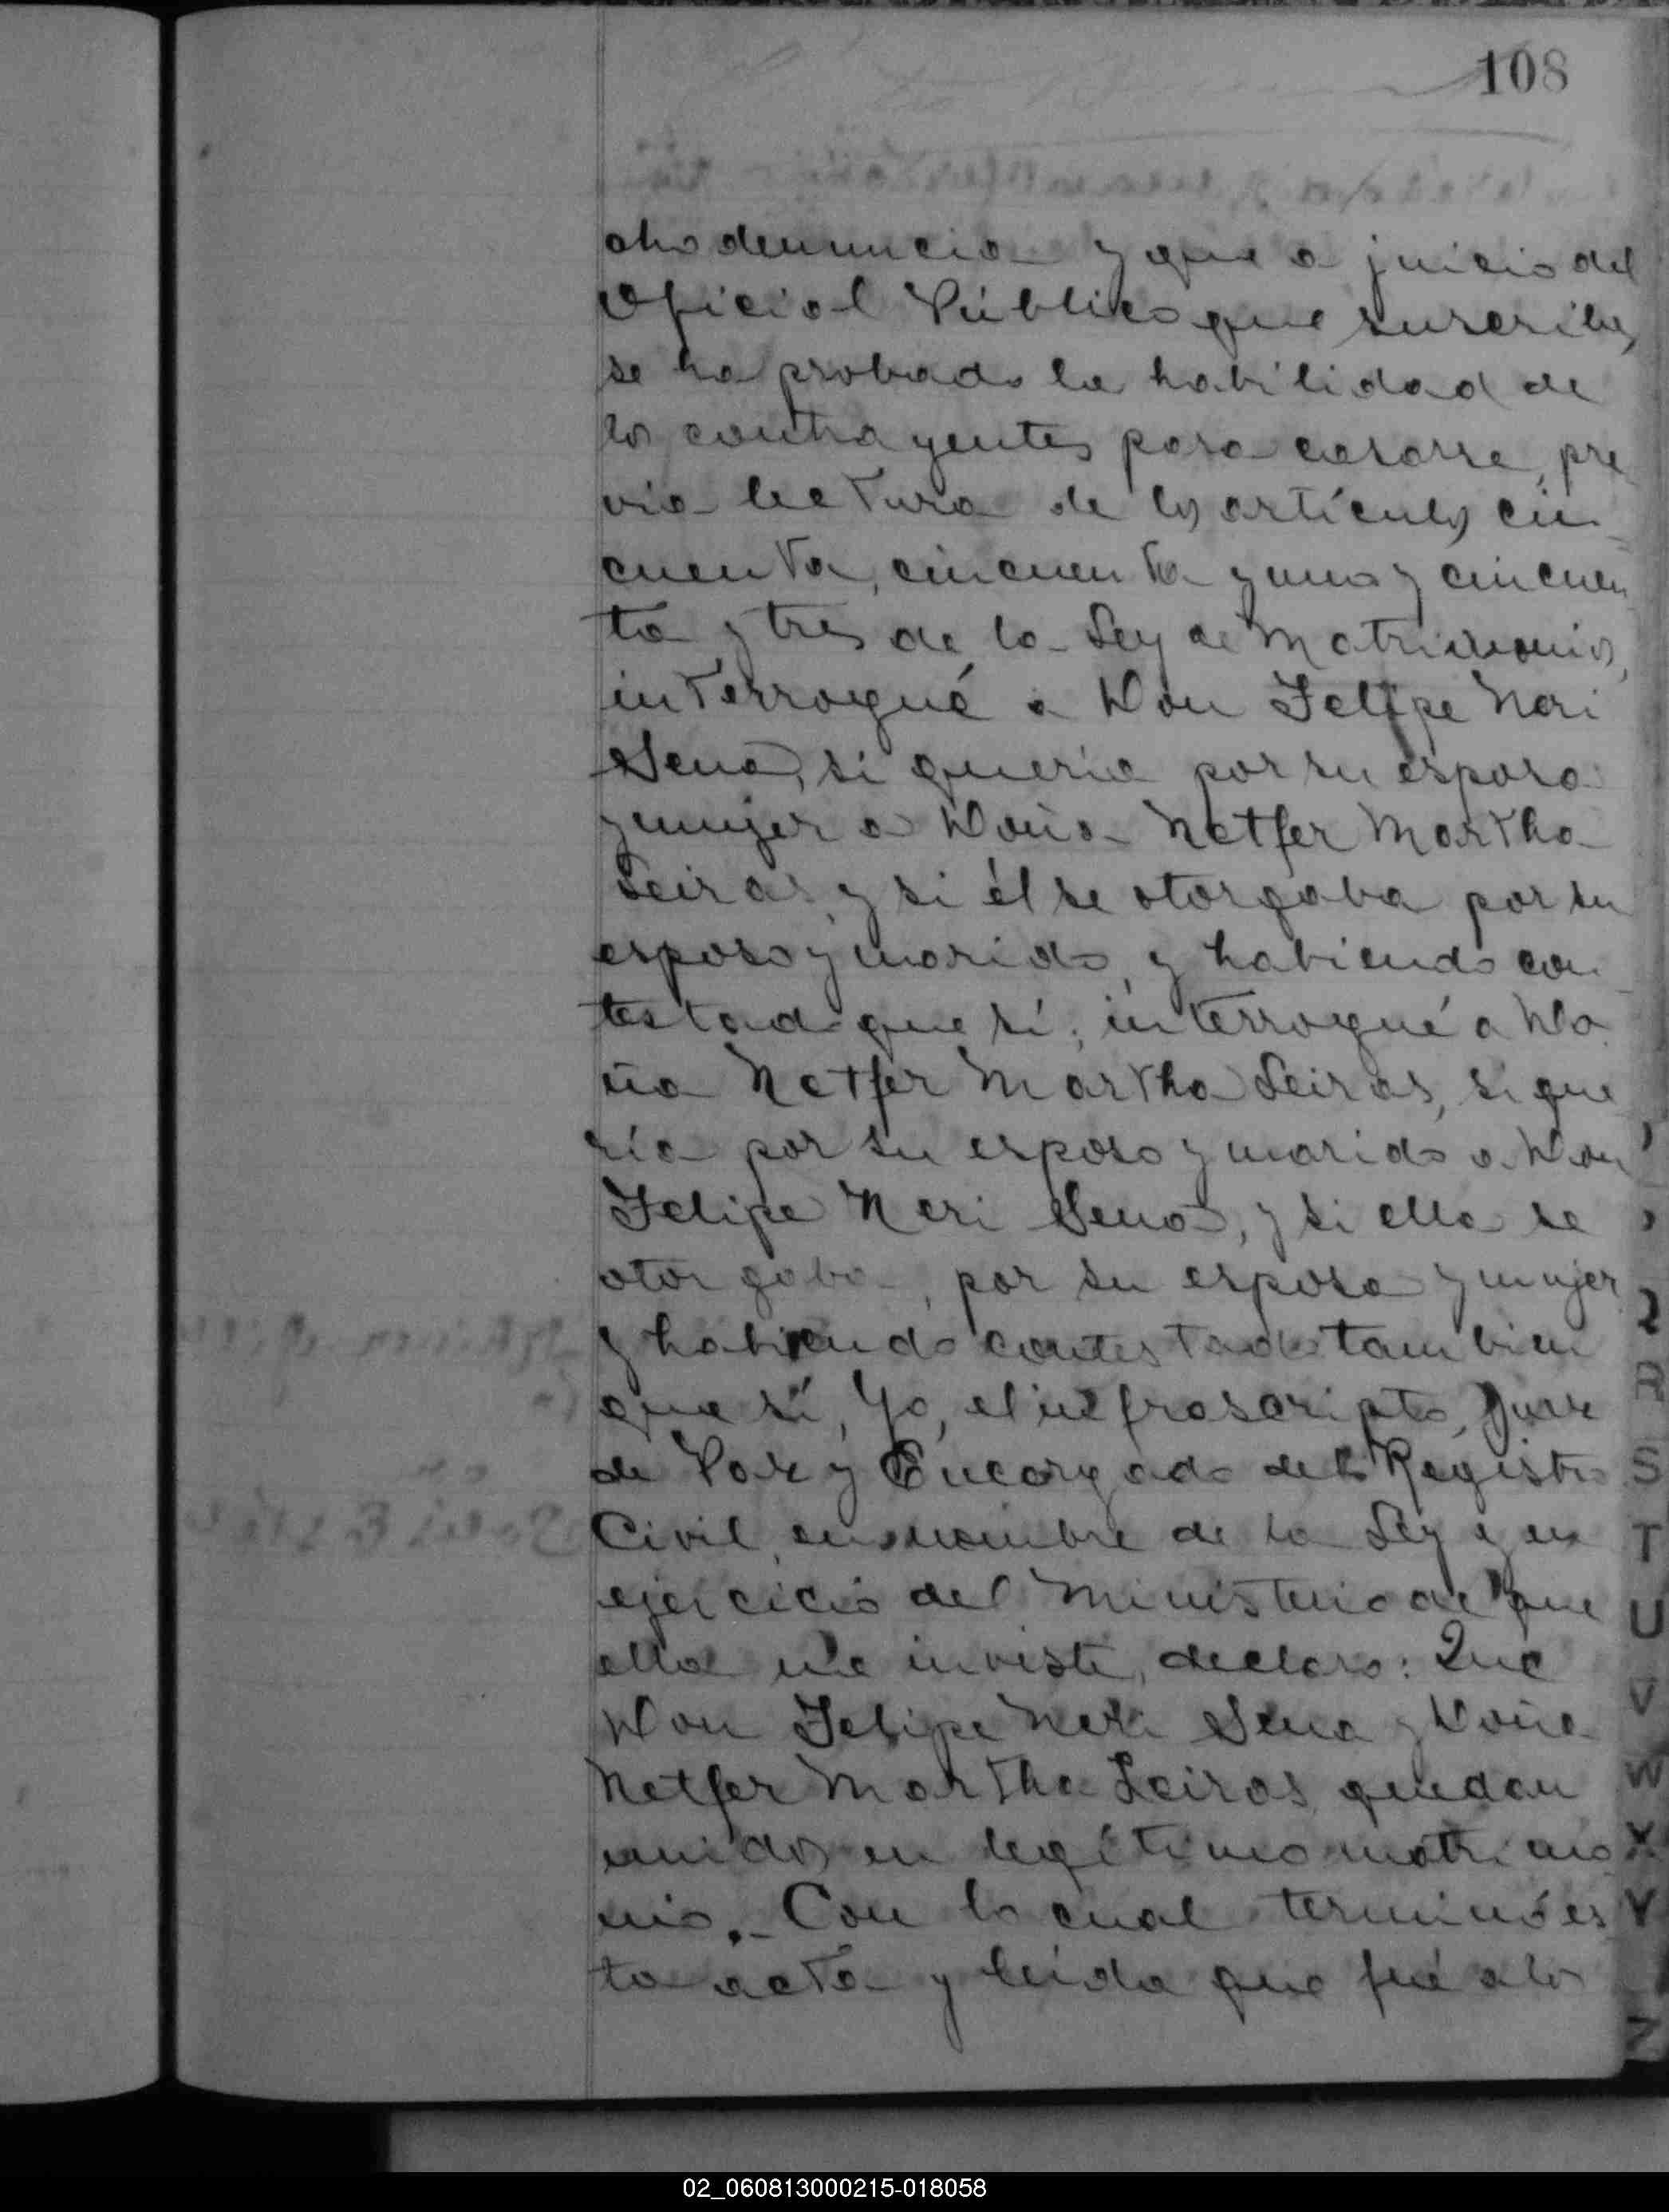 108
cho denuncia y que a juicio del
Oficial Público que suscribe,
se ha probado la habilidad de
los contrayentes para casarse, pre
via lectura de los artículos cin-
cuenta, cincuenta y uno y cincuen
ta y tres de la Ley de Matrimonio,
interrogué a Don Felipe Neri
Sena, si quería por su esposa
y mujer a Doña Netfer Martha
Leiras, y si él se otorgaba por su
esposo y marido, y habiendo con
testado que sí; interrogué a Do
ña Netfer Martha Leiras, si que
ría por su esposo y marido a Don
Felipe Neri Sena, y si ella se
otorgaba, por su esposa y mujer
y habiendo contestado tambien
que sí, Yo, el infrascripto, Juez
de Paz y Encargado del Registro
Civil, en nombre de la Ley y en
ejercicio del Ministerio de que
ella me inviste, declaro: Que
Don Felipe Neri Sena y Doña
Netfer Martha Leiras quedan
unidos en legítimo matrimo
nio.- Con lo cual terminó es
ta acta y leída que fué a los
2
R
S
T
U
V
W
X
Y
Z
02_060813000215-018058